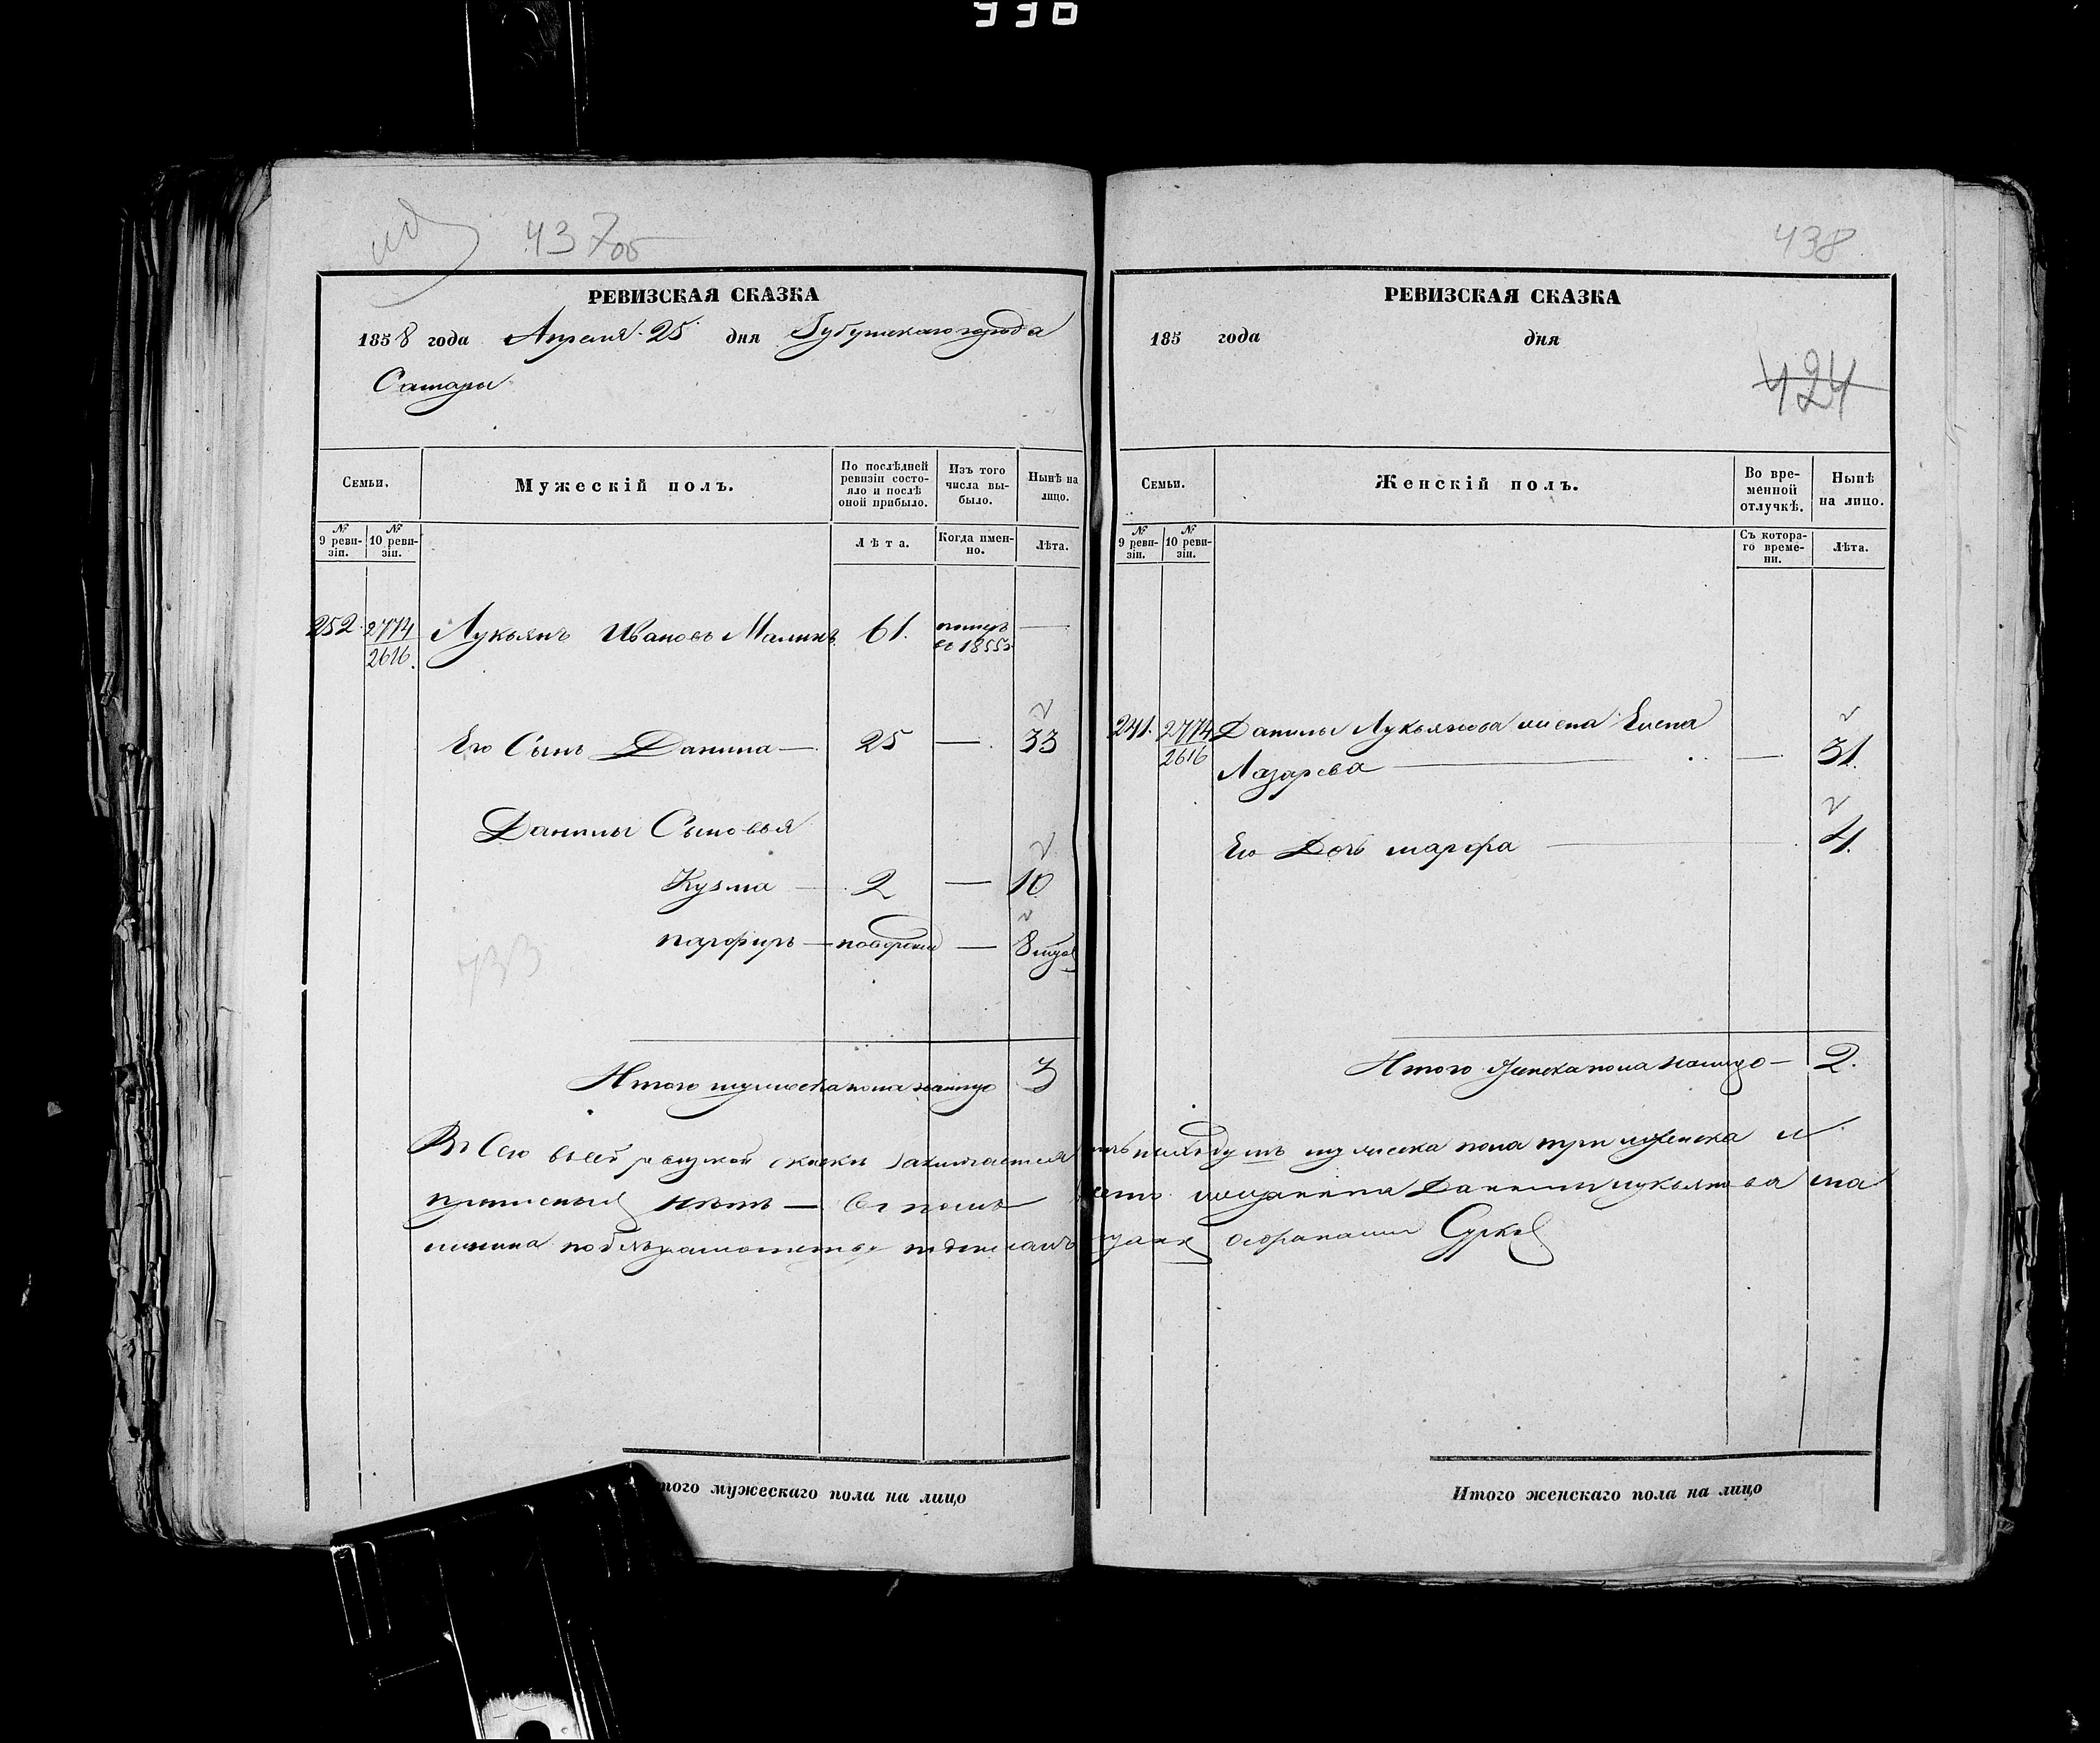 437 об
РЕВИЗСКАЯ СКАЗКА
1858 года Апреля 25 дня Губернскаго города
Самары
Семьи.
Мужескій полъ.
По послѣдней ревизіи состояло и послѣ оной прибыло.
Изъ того числа выбыло.
Нынѣ на лицо.
№ 9 ревизіи.
№ 10 ревизіи.
Лѣта.
Когда именно.
Лѣта.
252. 2774 Лукьянъ Ивановъ Малинъ 61. умеръ —
2616. въ 1855
Его Сынъ Данила — 25 — 33
Данилы Сыновья
Кузма — 2 — 10
парфиръ — — 8
733
Итого мужеска пола налицо 3
Итого мужескаго пола на лицо
438
РЕВИЗСКАЯ СКАЗКА
185 года дня
424
Семьи.
Женскій полъ.
Во временной отлучкѣ.
Нынѣ на лицо.
№ 9 ревизіи.
№ 10 ревизіи.
Съ котораго времени.
Лѣта.
241. 2774 Данилы Лукьянова жена Елена
2616 Лазарева — — 31.
Его Дочь марфа — 4.
Итого Женска пола налицо — 2.
ревизкой сказки мужеска пола три женска
нетъ — Данилы Лукьянова Ма
лина
Итого женскаго пола на лицо